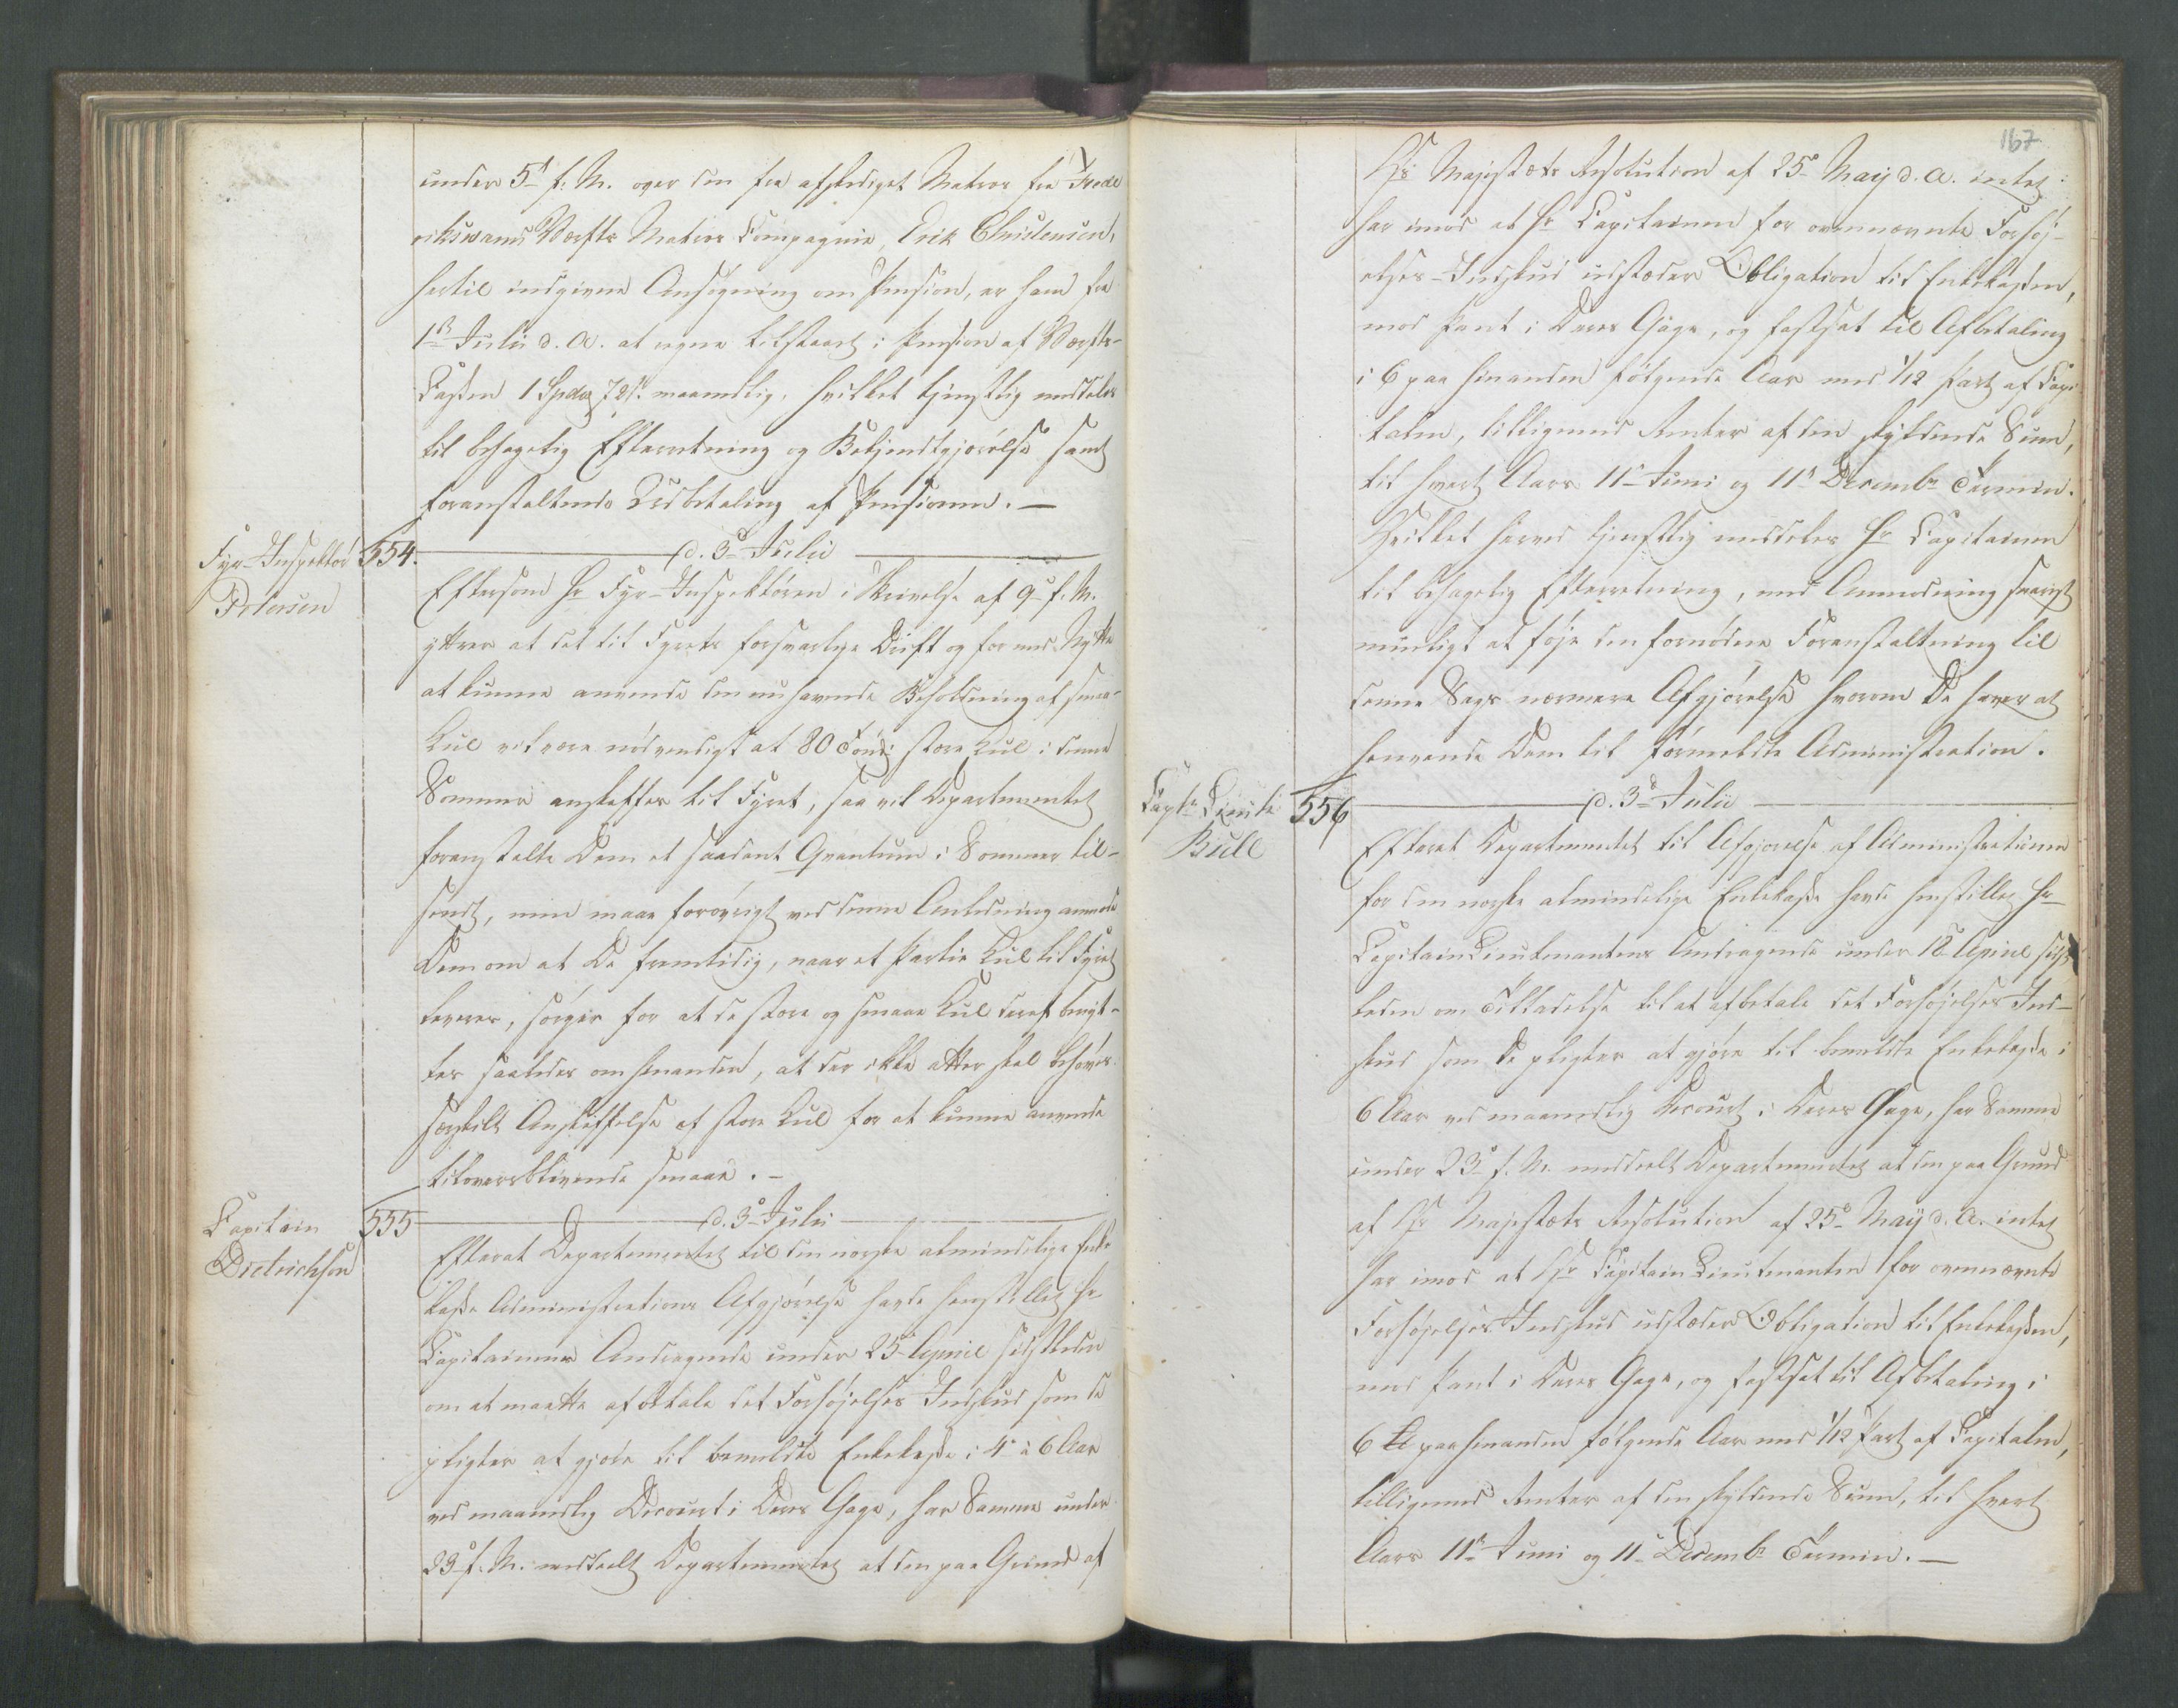 under 5te f: M. over den fra afskediget Matros fra Frede
riksværns Værfts Matros Compagnie, Erik Christensen,
hertil indgivne Ansøgning om Pension, er ham fra
1ste Julii d. A. at regne tilstaaet i Pension af Værfts-
Cassen 1 Spdlr 72 s. maanedlig, hvilket tjenstlig meddeles
til behagelig Efterretning og Bekjendtgjørelse samt
foranstaltende Udbetaling af Pensionen. —
Fyr-Inspektør
Petersen
554.
d. 3die Julii
Eftersom Hr Fyr-Inspektøren i Skrivelse af 9de f. M.
yttrer at det til Fyrets forsvarlige Drift og for med Nytte
at kunne anvende den nu havende Beholdning af smaa-
Kul vil være nødvendigt at 80 Tønder store Kul i denne
Sommer anskaffes til Fyret, saa vil Departementet
foranstalte Dem et saadant Qvantum i Sommer til-
sendt, men maae forøvrigt ved denne Anledning anmode
Dem om at De fremtidig, naar et Partie Kul til Fyret
leveres, sørger for at de store og smaae Kul deraf benyt-
tes saaledes om hinanden, at der ikke atter skal behøves
særskilt Anskaffelse af store Kul for at kunne anvende
tiloversblivende smaae. —
Capitain
Dietrichson
555
d. 3die Julii
Efterat Departementet til den norske almindelige Enke
kasse Administrations Afgjørelse havde henstillet Hr
Capitainens Andragende under 25de April sidstleden
om at maatte afbetale det Forhøjelses Indskud som De
pligter at gjøre til bemeldte Enkekasse i 4 à 6 Aar
ved maanedlig Decourt i Deres Gage, har Samme under
23de f. M. meddeelt Departementet at den paa Grund af
167
Hs Majestæts Resolution af 25de May d. A. intet
har imod at Hr Capitainen for ovennævnte Forhøj-
elses-Indskud udsteder Obligation til Enkekassen,
mod Pant i Deres Gage, og fastsat til Afbetaling
i 6 paa hinanden følgende Aar med 1/12 Part af Capi
talen, tilligemed Renter af den skyldende Sum,
til hvert Aars 11te Juni og 11te Decembr Termin.
Hvilket herved tjenstlig meddeles Hr Capitainen
til behagelig Efterretning, med Anmodning snarest
mueligt at føje den fornødne Foranstaltning til
denne Sags nærmere Afgjørelse hvorom De haver at
henvende Dem til formeldte Administration.
Captn Lieutn
Bull
556
d. 3die Julii
Efterat Departementet til Afgjørelse af Administrationen
for den norske almindelige Enkekasse havde henstillet Hr
Capitain Lieutenantens Andragende under 18 April sidst
leden om Tilladelse til at afbetale det Forhøjelses Ind-
skud som De pligter at gjøre til bemeldte Enkekasse i
6 Aar ved maanedlig Decourt i Deres Gage, har Samme
under 23de f. M. meddeelt Departementet at den paa Grund
af Hs Majestæts Resolution af 25de May d. A. intet
har imod at Hr Capitain Lieutenanten for ovennævnte
Forhøjelses Indskud udsteder Obligation til Enkekassen,
mod Pant i Deres Gage, og fastsat til Afbetaling i
6 paa hinanden følgende Aar med 1/12 Part af Capitalen,
tilligemed Renter af den skyldende Sum, til hvert
Aars 11te Juni og 11te Decembr Termin. —